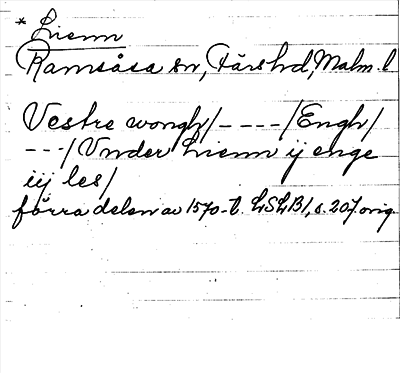 * Lienn
Ramsåsa sn, Färs hd, Malm. l
Vestre wongh/ - - - - /Engh/
- - -/ Vnder Lienn ij enge
iij les/
förra delen av 1570-t. LSLB1, s. 207 orig.